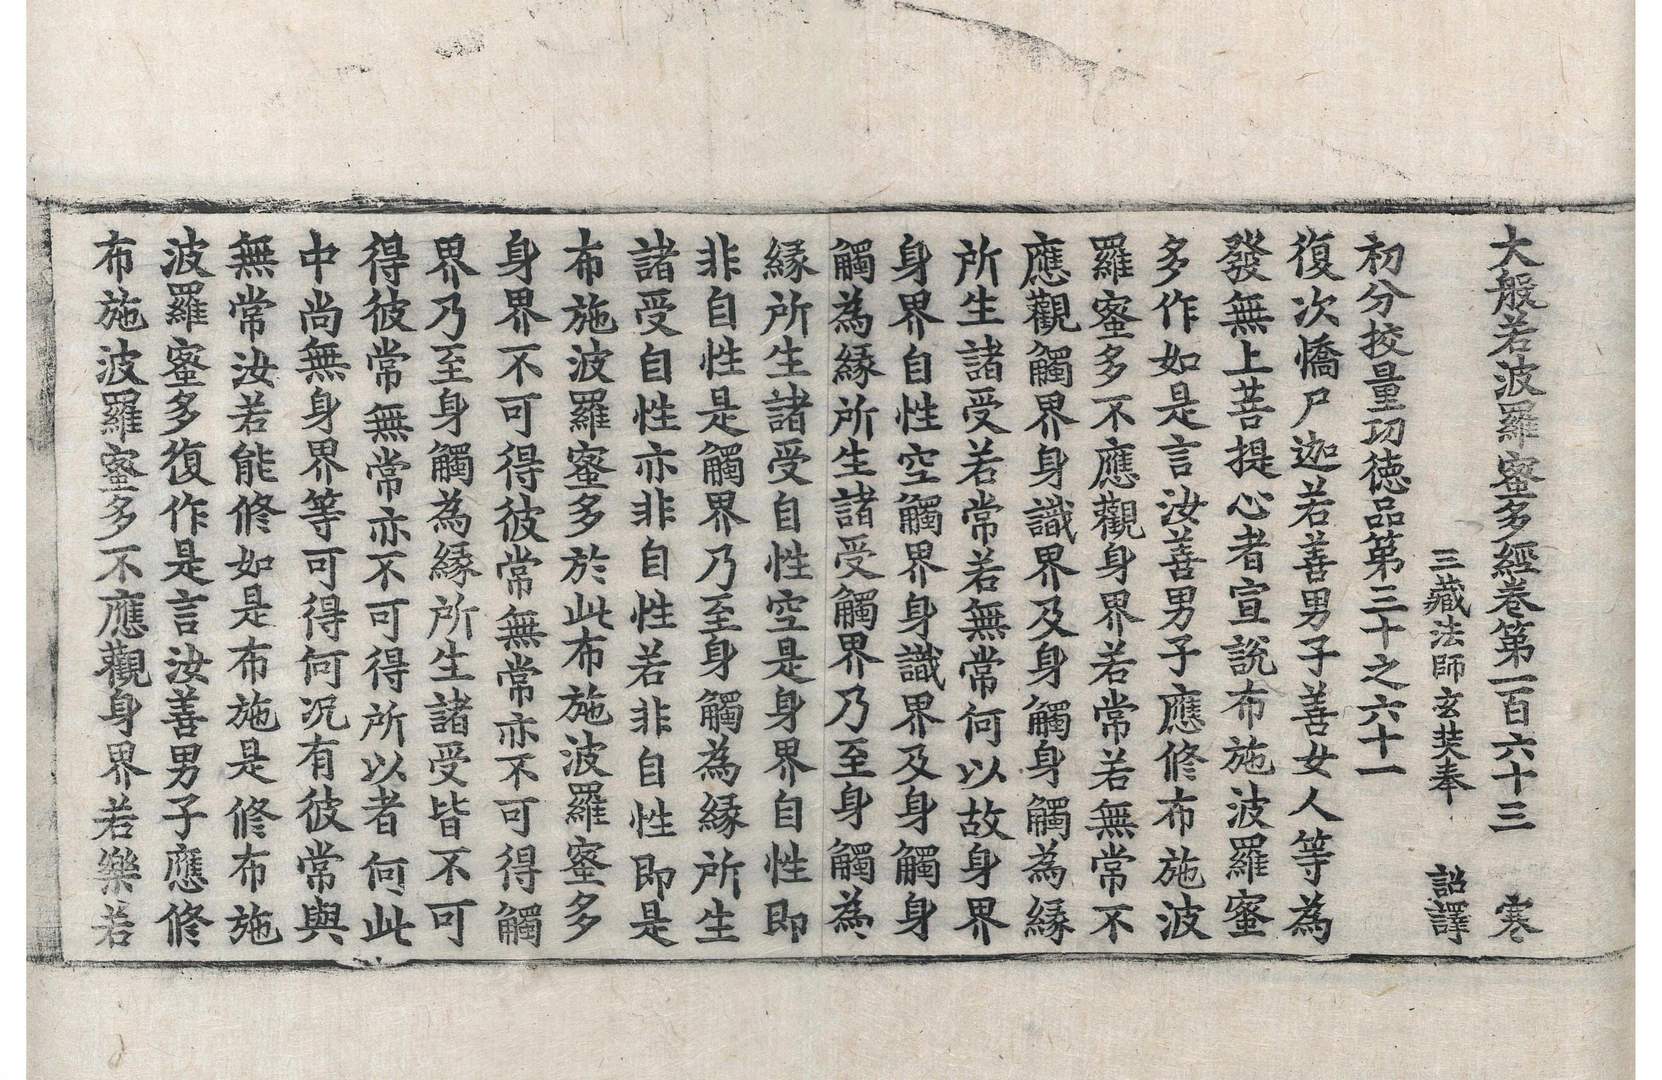 大般若波羅蜜多經卷第一百六十三 寒
三藏法師玄奘奉 詔譯
初分挍量功德品第三十之六十一
復次憍尸迦若善男子善女人等為
發無上菩提心者宣說布施波羅蜜
多作如是言汝善男子應修布施波
羅蜜多不應觀身界若常若無常不
應觀觸界身識界及身觸身觸為緣
所生諸受若常若無常何以故身界
身界自性空觸界身識界及身觸身
觸為緣所生諸受觸界乃至身觸為
緣所生諸受自性空是身界自性即
非自性是觸界乃至身觸為緣所生
諸受自性亦非自性若非自性即是
布施波羅蜜多於此布施波羅蜜多
身界不可得彼常無常亦不可得觸
界乃至身觸為緣所生諸受皆不可
得彼常無常亦不可得所以者何此
中尚無身界等可得何況有彼常與
無常汝若能修如是布施是修布施
波羅蜜多復作是言汝善男子應修
布施波羅蜜多不應觀身界若樂若